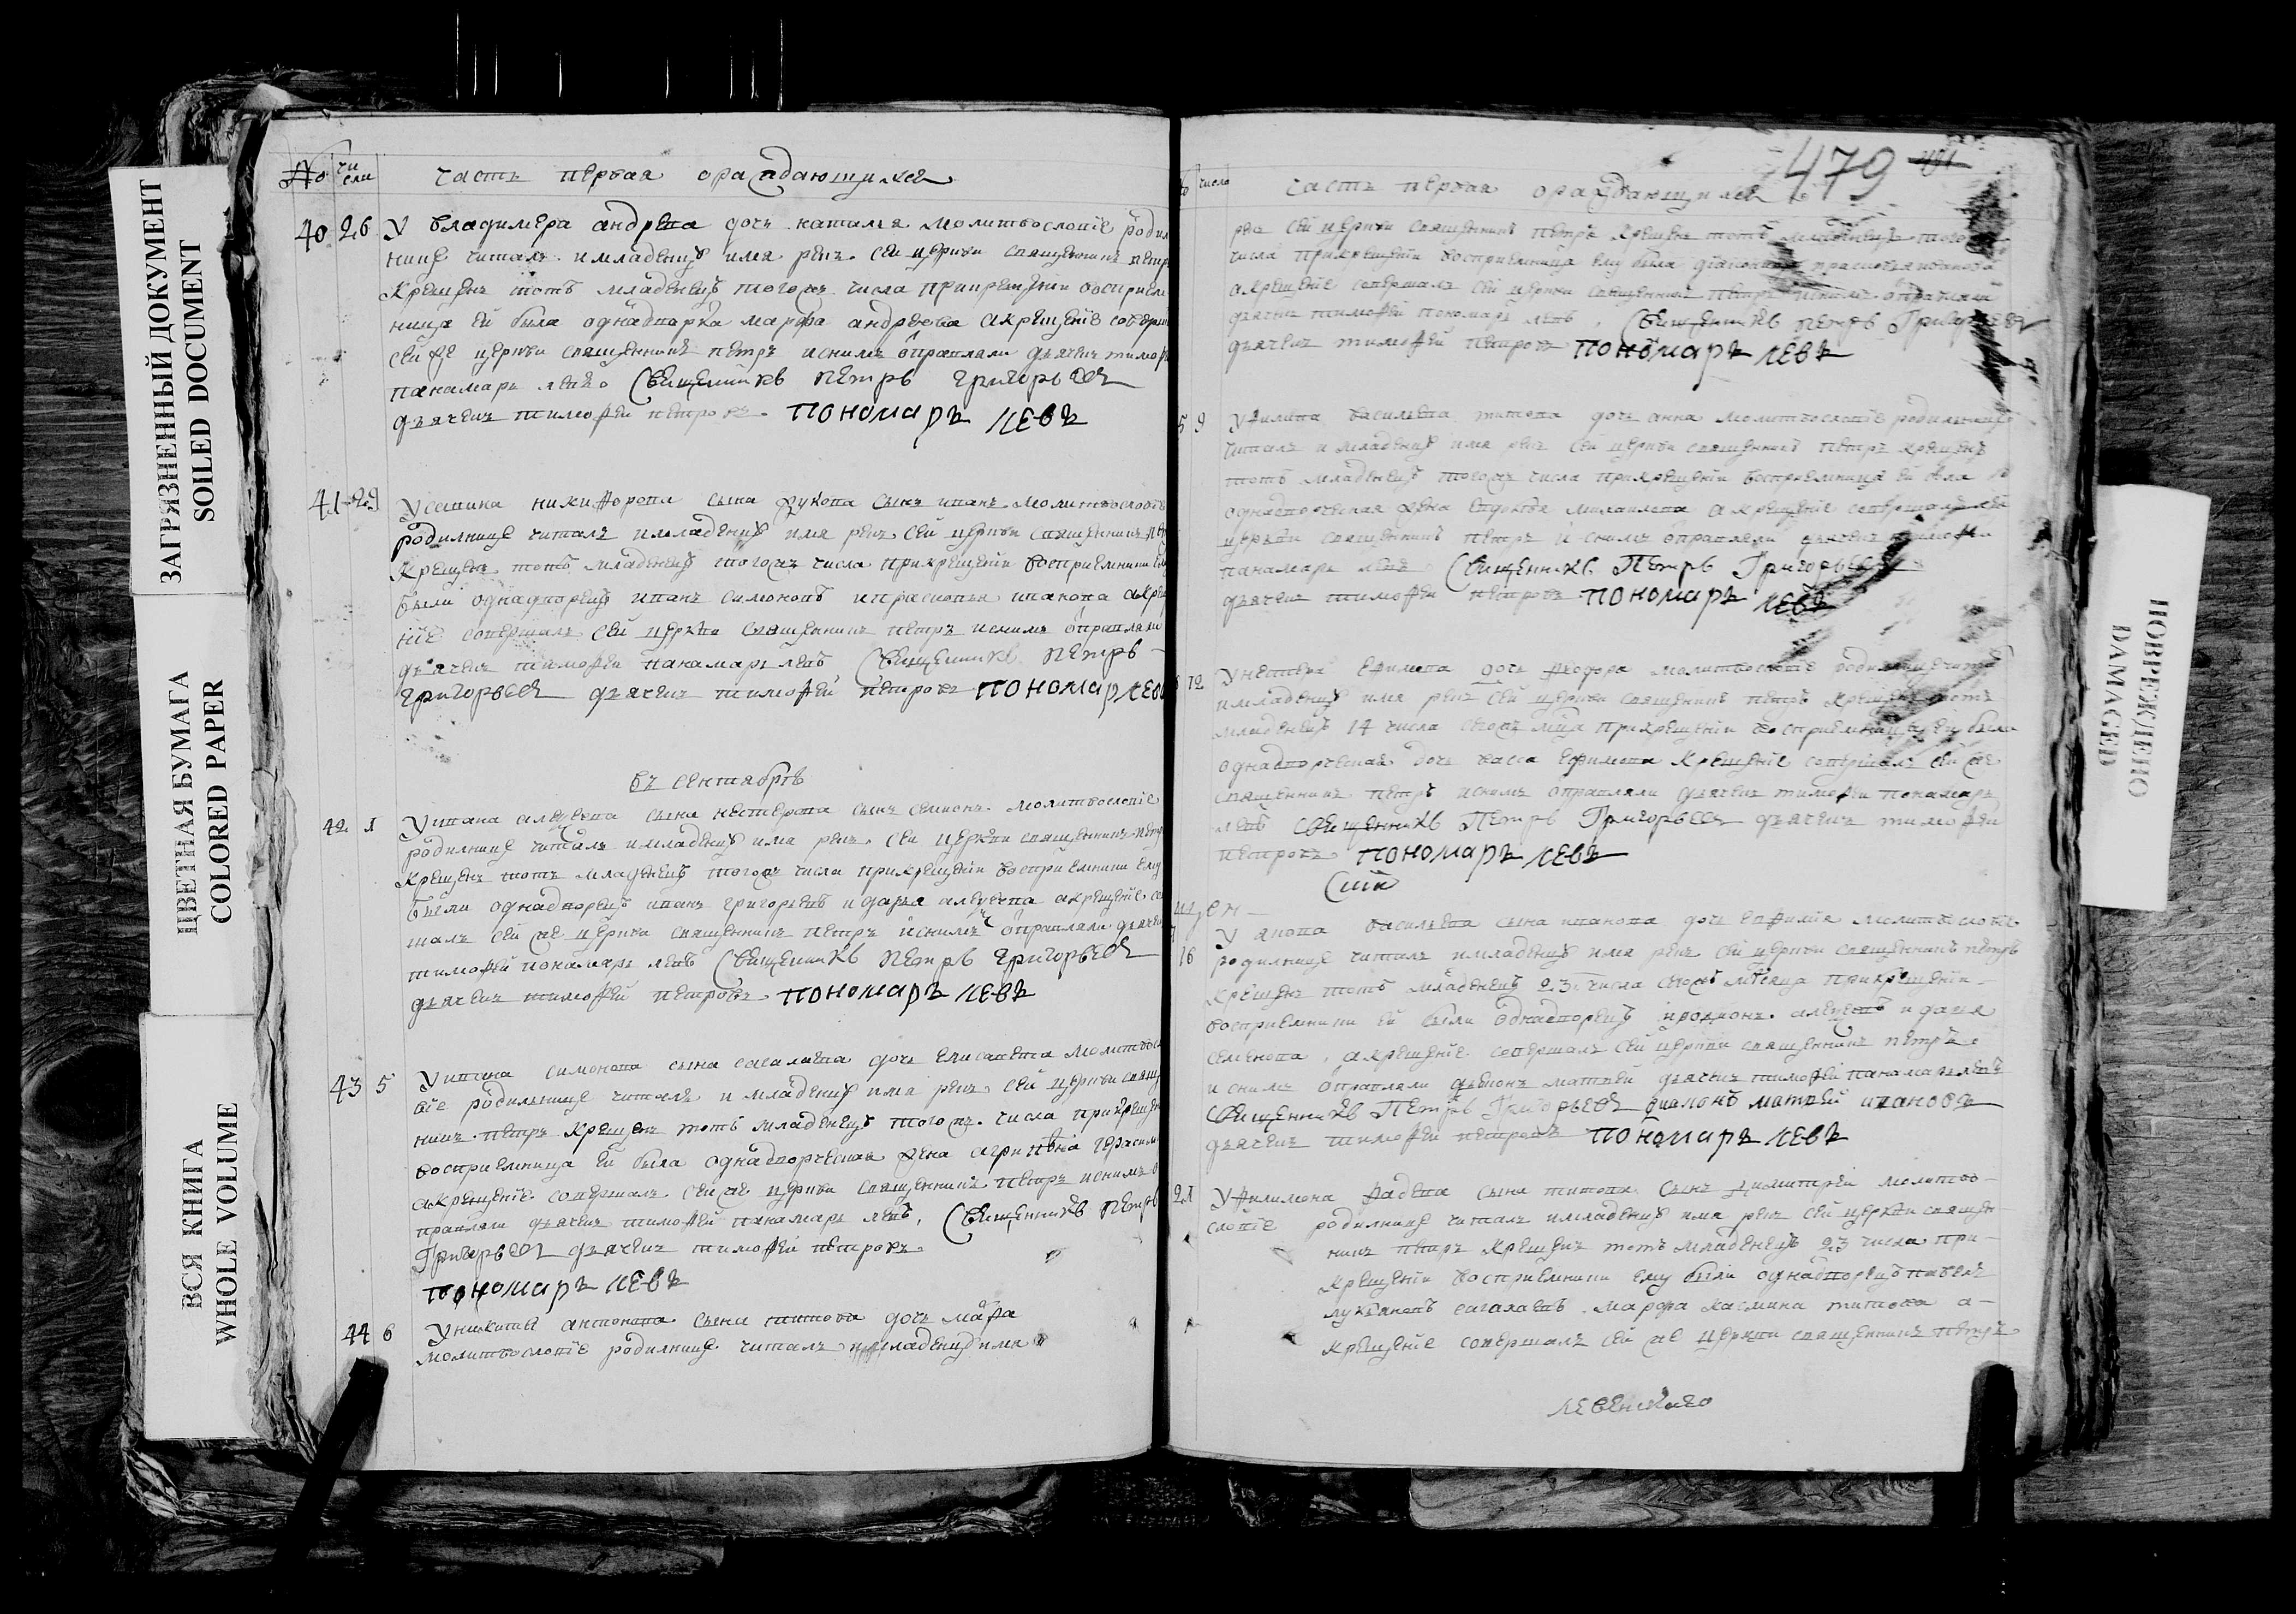 ЗАГРЯЗНЕННЫЙ ДОКУМЕНТ
SOILED DOCUMENT
ЦВЕТНАЯ БУМАГА
COLORED PAPER
ВСЯ КНИГА
WHOLE VOLUME
№ чи
сли часть первая ораждающихся
40 26 У владимера андрева дочь наталья молитвословіе родил
нице читалъ имладенцу имя рекъ сей церкви священникъ петръ
крещенъ тотъ младенецъ тогожъ числа прикрещеніи восприем
ница ей была однадворка марфа андреева акрещеніе соверш
сей же церкви священникъ петръ иснимъ отправляли дьячекъ тимоф
панамарь левъ Свещенникъ Петръ Григорьевъ
дьячекъ тимофей петровъ пономаръ левъ
41 29 никифорова сына жукова сынъ иванъ молитвословіе
родилнице читалъ имладенцу имя рекъ сей церкви священникъ
крещенъ тотъ младенецъ тогожъ числа прикрещеніи восприемники
были однадворецъ иванъ симоновъ ипрасковья иванова акре
ніе совершалъ сей церкви священникъ петръ иснимъ отправляли
дьячекъ тимофей панамарь левъ Свещенникъ Петръ
Григорьевъ дьячекъ тимофей петровъ пономаръ левъ
въ сентябрѣ
42 1 Уивана алексева сына нестерова сынъ семионъ молитвословіе
родилнице читалъ имладенцу имя рекъ сей церкви священникъ петръ
крещенъ тотъ младенецъ тогожъ числа прикрещеніи восприемники ему
были однадворецъ иванъ григорьевъ идарья алексева акрещеніе со
шалъ сей же церкви священникъ петръ иснимъ отправляли дьячекъ
тимофей понамарь левъ Свещенникъ Петръ Григорьевъ
дьячекъ тимофей петровъ пономаръ левъ
43 5 Уивана симонова сына сагалаева дочь елисавета молитвосл
віе родильнице читалъ имладенцу имя рекъ сей церкви свящ
никъ петръ крещенъ тотъ младенецъ тогожъ числа прикрещен
восприемница ей была однадворческая жена агрипена герасим
акрещеніе совершалъ сейже церкви священникъ петръ иснимъ о
правляли дьячекъ тимофей панамарь левъ, Свещенникъ Петръ
Григорьевъ дьячекъ тимофей петровъ
пономаръ левъ
44 6 Уникитай антонова сына титова дочь
молитвословіе родилнице читалъ имладенцу имя
число часть первая ораждающихся 479
рекъ сей церкви священникъ петръ крещенъ тотъ младенецъ тогожъ
числа прикрещеніи восприемница ему была прасковья иванова
акрещеніе совершалъ сей церкви священникъ петръ иснимъ отправляли
дьячекъ тимофей пономарь левъ, Свещенникъ Петръ Григорьевъ
дьячекъ тимофей петровъ пономаръ левъ
5 9 Уфилипа васильева титова дочь анна молитвословіе родильнице
читалъ имладенцу имя рекъ сей церкви священникъ петръ крещенъ
тотъ младенецъ тогожъ числа прикрещеніи восприемница ей была
однадворческая жена евдокея михаилова акрещеніе совершалъ сей
церкви священникъ петръ иснимъ отправляли дьячекъ тимофей
панамарь левъ Свещенникъ Петръ Григорьевъ
дьячекъ тимофей петровъ пономаръ левъ
12 Унестера ефимова дочь феодора молитвословіе родилнице читалъ
имладенцу имя рекъ сей церкви священникъ петръ крещенъ тотъ
младенецъ 14 числа сегожъ мца прикрещеніи восприемница ей была
однадворческая дочь васса ефимова крещеніе совершалъ сейже
священникъ петръ иснимъ отправляли дьячекъ тимофей понамарь
левъ Свещенникъ Петръ Григорьевъ дьячекъ тимофей
петровъ пономаръ левъ
16 васильева сына иванова дочь евфимія молитвословіе
родилнице читалъ имладенцу имя рекъ сей церкви священникъ петръ
крещенъ тотъ младенецъ 23 числа сегожъ мѣсяца прикрещеніи
восприемники ей были однадворецъ иродионъ алексевъ идарья
семенова, акрещеніе совершалъ сей церкви священникъ петръ
иснимъ отправляли дьяконъ матвей дьячекъ тимофей панамарь левъ
Свещенникъ Петръ Григорьевъ диаконъ матвей ивановъ
дьячекъ тимофей петровъ пономаръ левъ
21 Уфилимона фадева сына титова сынъ димитрей молитво-
словіе родилнице читалъ имладенцу имя рекъ сей церкви священ
никъ петръ крещенъ тотъ младенецъ 23 числа при-
крещеніи восприемники ему были однадворецъ павелъ
лукьяновъ сагалаевъ марфа касмина титова а-
крещеніе совершалъ сей же церкви священникъ петръ
ПОВРЕЖДЕНО
DAMAGED